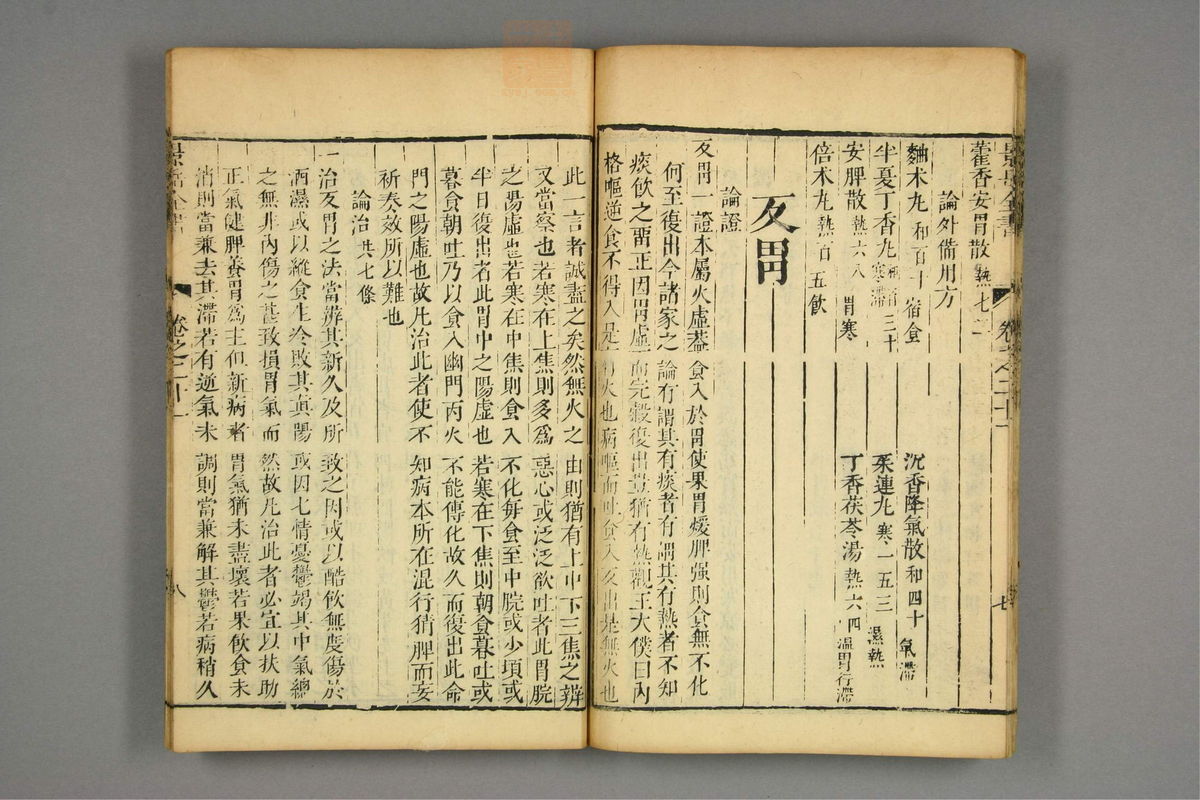 藿香安胃散熱七二
論外備用方
麯术丸和百十 宿食
沉香降氣散和四十 氣滯
半夏丁香丸 寒滯 三十
茱連丸寒一五三 濕熱
安脾散熱六八 胃寒
丁香茯苓湯熱六四 溫胃行滯
倍术丸熱百五飲
反胃
論證
反胃一證本屬火虛蓋食入於胃使果胃煖脾强則食無不化
何至復出今諸家之論有謂其有痰者有謂其有熱者不知
痰飲之畱正因胃虛而完穀復出豈猶有熱觀王太僕曰內
格嘔逆食不得入是有火也病嘔而吐食入反出是無火也
此一言者誠盡之矣然無火之由則猶有上中下三焦之辨
又當察也若寒在上焦則多爲惡心或泛泛欲吐者此胃脘
之陽虛也若寒在中焦則食入不化每食至中脘或少頃或
半日復出者此胃中之陽虛也若寒在下焦則朝食暮吐或
暮食朝吐乃以食入幽門丙火不能傳化故久而復出此命
門之陽虛也故凡治此者使不知病本所在混行猜脾而妄
祈奏效所以難也
論治 共七條
一治反胃之法當辨其新久及所致之因或以酷飲無度傷於
酒濕或以縱食生冷敗其眞陽或因七情憂鬱竭其中氣總
之無非內傷之甚致損胃氣而然故凡治此者必宜以扶助
正氣健脾養胃爲主但新病者胃氣猶未盡壞若果飲食未
消則當兼去其滯若有逆氣未調則當兼解其鬱若病稍久
景岳全書
卷之二十一
七
景岳全書
卷之二十一
八